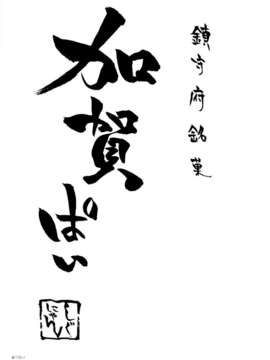 鎮守府銘菓
加賀ぱい
しゃぐ
にゃん